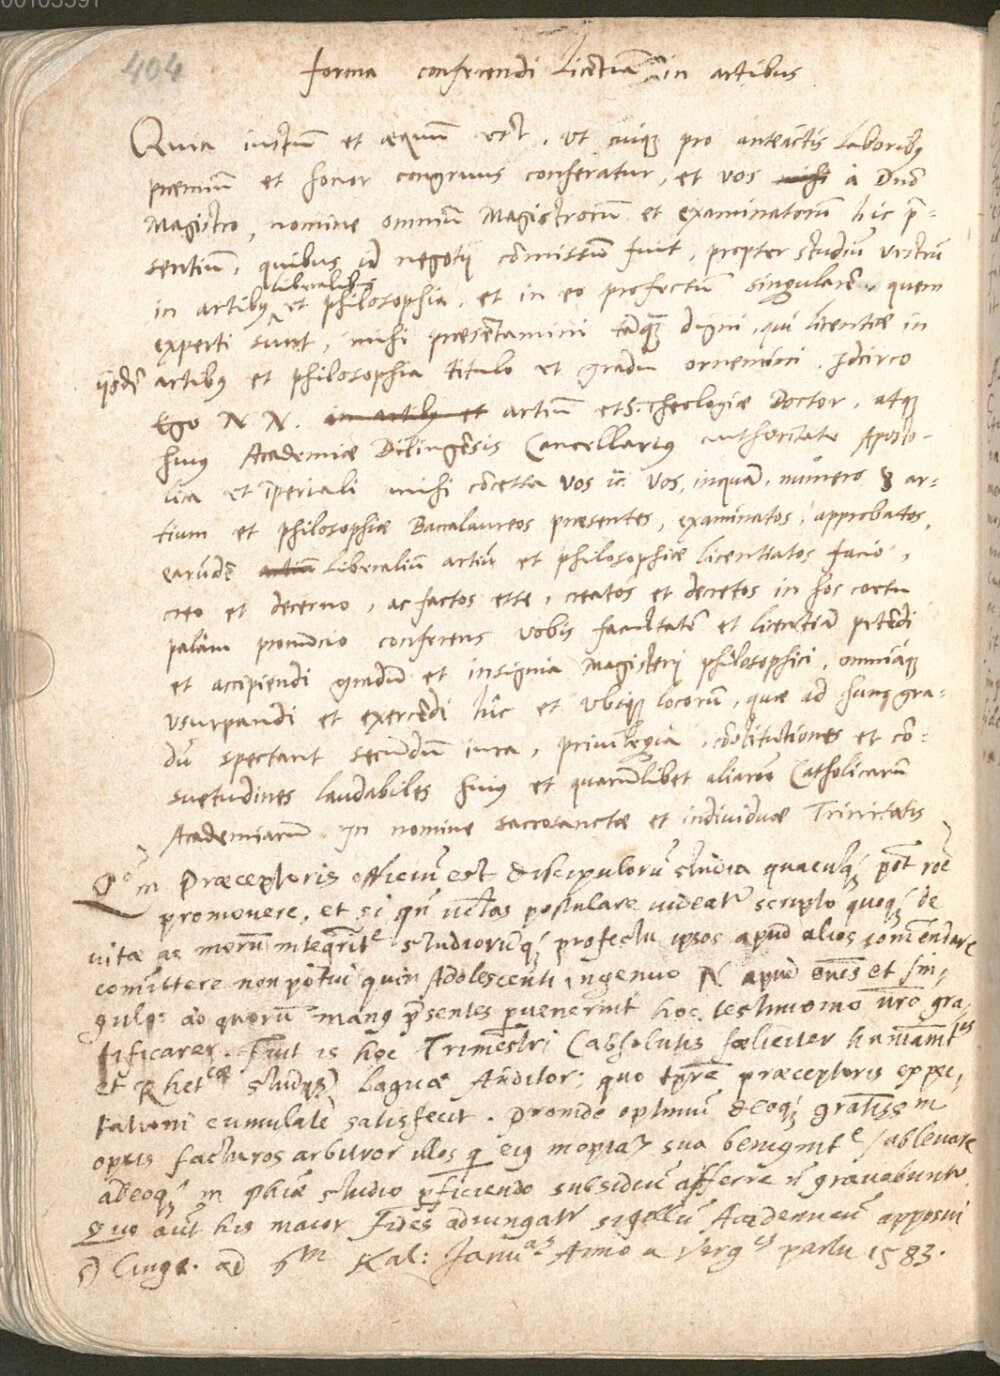 00105591
404
forma conferendi Licẽtiã in artibus
Quia iustũ et æquũ est, ut cuiq; pro anteactis laborib9
præmiũ et honor congruus conferatur, et vos mihi à Dño
Magistro, nomine omniũ Magistrorũ et examinatorũ hic p̃=
sentiũ, quibus id negotij cõmissũ fuit, propter studiũ vestrũ
liberalib9
in artib9 et philosophia, et in eo profectũ singularẽ, quem
experti sunt, mihi præsẽtamini tãq̃ digni, qui licentiæ in
ijsdẽ artib9 et philosophia titulo et gradu ornemini. Idcirco
Ego N N. in artib9 et artiũ et S. Theologiæ Doctor, atq;
huius Academiæ Dilingẽsis Cancellari9 authoritate Aposto-
lica et ĩperiali mihi cõcessa vos &c. Vos, inquã, numero 8 ar=
tium et philosophiæ Baccalaureos præsentes, examinatos, approbatos,
earũdẽ artiũ Liberaliũ artiũ et philosophiæ licentiatos facio,
creo et decerno, ac factos esse, creatos et decretos in hoc coetu
palàm pronũcio conferens vobis facultatẽ et licentiã petẽdi
et accipiendi gradũ et insignia Magisterij philosophici, omniaq;
usurpandi et exercẽdi hîc et ubiq; locorũ, quæ ad hunc gra=
dũ spectant secũdũ iura, privilegia, cõstitutiones et cõ=
suetudines laudabiles huius et quarũlibet aliarũ Catholicarũ
Academiarũ In nomine sacrosanctæ et individuæ Trinitatis
Qm Præceptoris officiũ est discipulorũ studia quacũq; põt rõe
promovere, et si qñ vtilitas postulare uideat scripto quoq; de
vitæ ac morũ integrite studiorũq; profectu ipsos apud alios comẽndare
comittere non potui quin Adolescenti ingenuo N apud oẽs et sin,
gulos ad quorũ man9 p̃sentes pervenerint hoc testimonio ñro gra,
tificarer. Fuit is hoc Trimestri (absolutis foeliciter humanitis
et Rhetcæ studijs) Logicæ Auditor; quo tp̃re præceptoris expec,
tationi cumulatè satisfecit. Proinde optimũ deoq; gratiss m
opus facturos arbitror illos q ei9 inopiã sua benignite sublevare
adeoq; in phiæ studio pficiendo subsidiũ afferre ñ gravabuntr.
Quo aũt his maior fides adiungatr sigillũ Academicũ apposui
Ling. ad 6m Kal: Januas Anno a Virgis partu 1583.